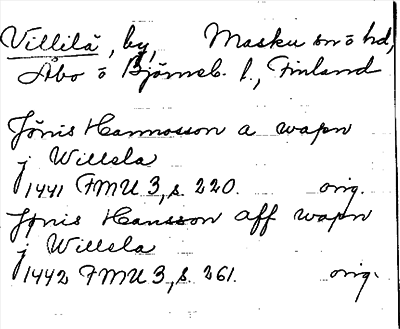 Villilä, by, Masku sn o hd,
Åbo o Björneb. l., Finland
Jönis Hannosson a wapn
j Willela
1441 FMU 3, s. 220. orig.
Jönis Hansson aff wapn
j Willela
1442 FMU 3, s. 261. orig.